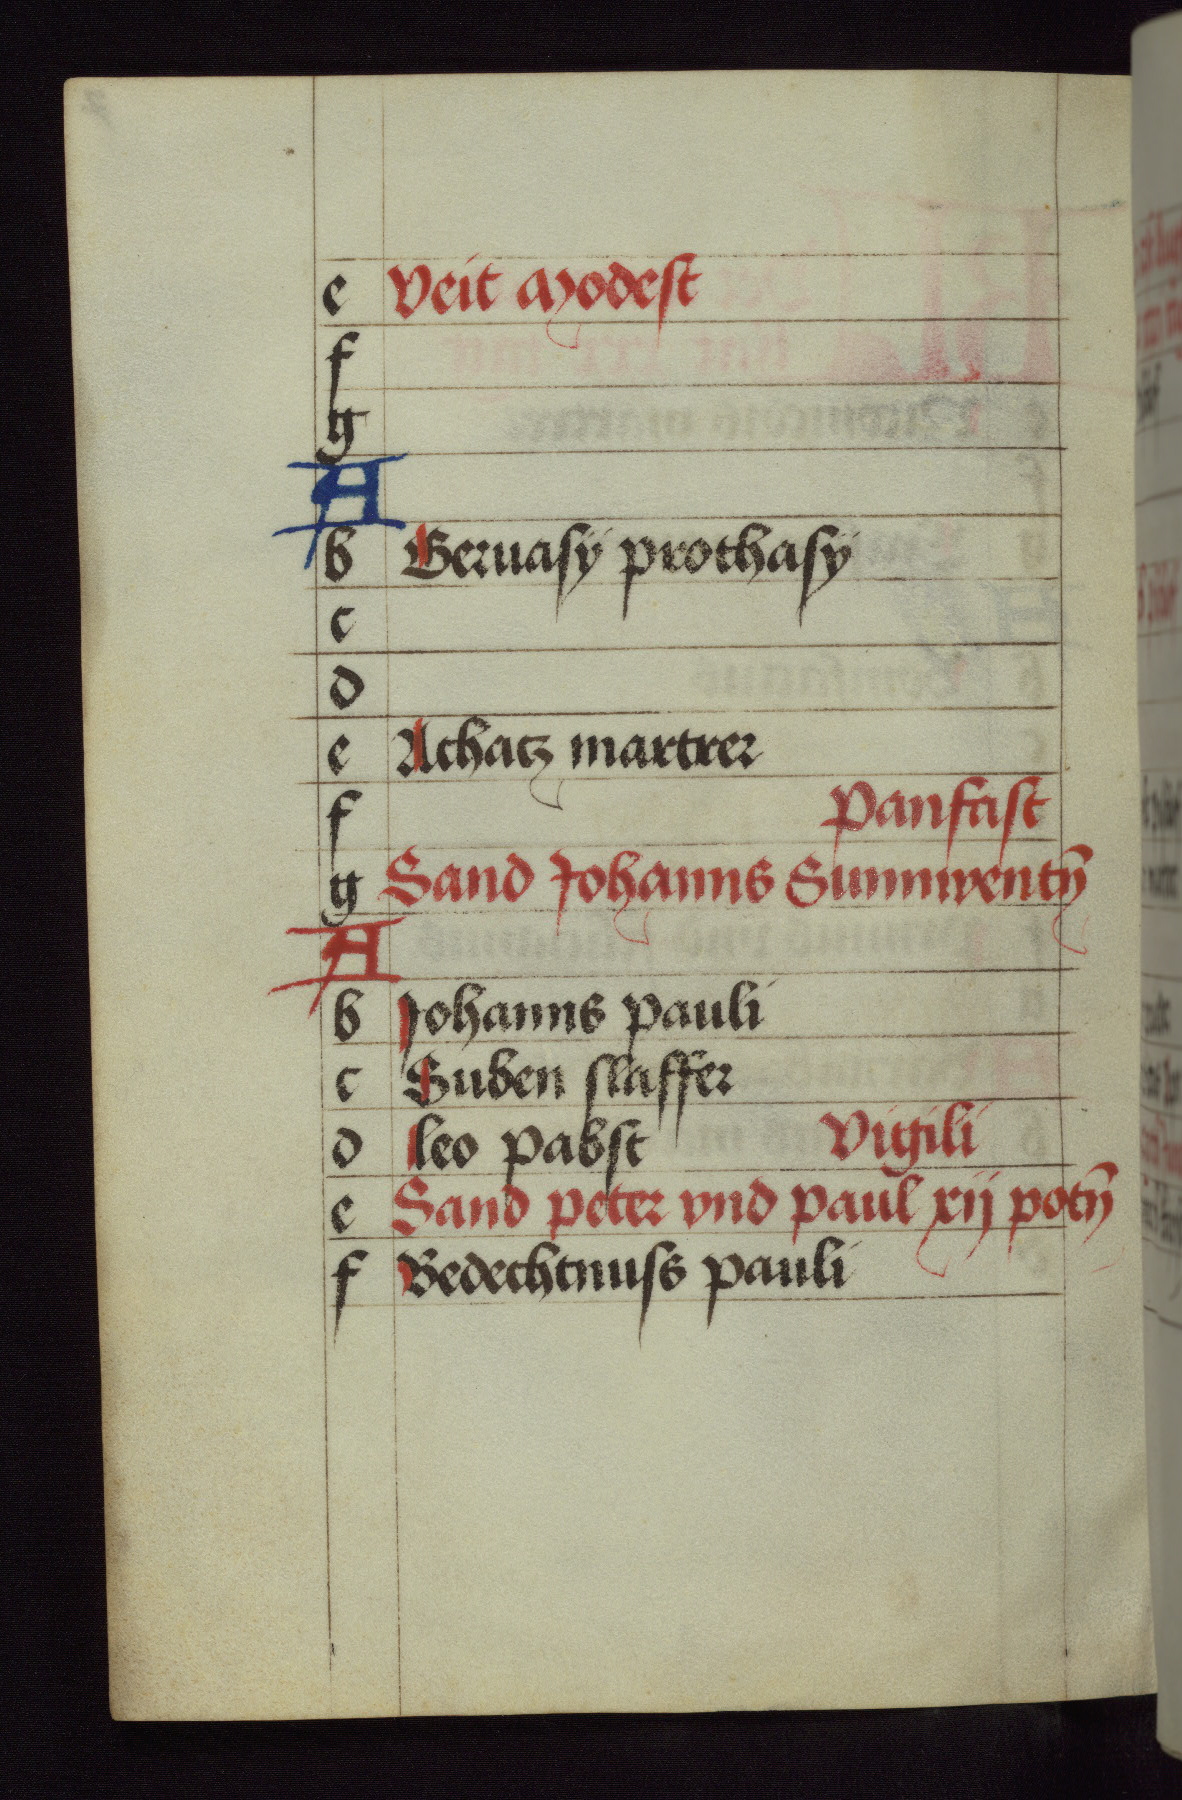 e Veit Modest
f
g
A
b Geruasÿ prothasÿ
c
d
e Achacz martrer
f Panfast
g Sand Johanns Sunnwentñ
A
b Johanns pauli
c Suben slaffer
d leo pabst Vigili
e Sand peter vnd paul xij potñ
f Bedechtnuss pauli